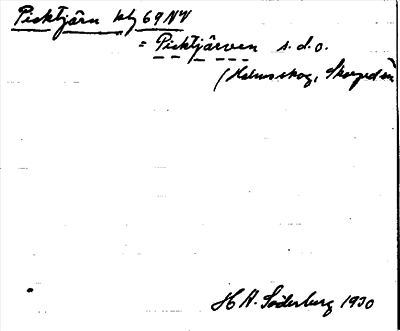 Picktjärn kbg 69NV
= Picktjärnen s.d.o.
(Hälsskog, Skorped sn
H A. Söderberg 1930